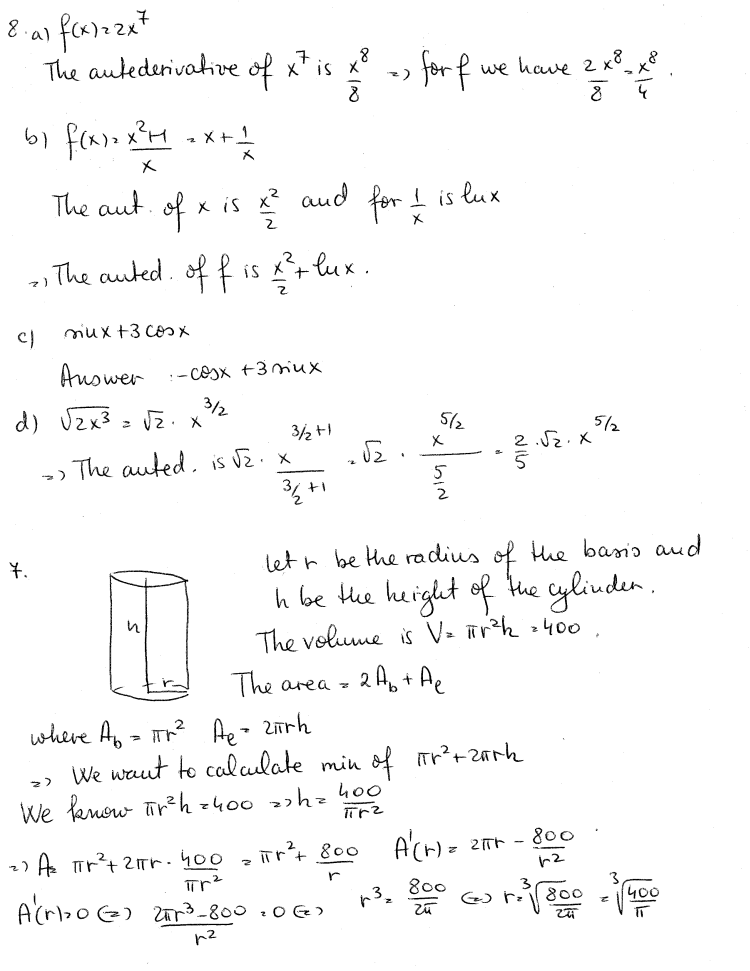 8. a) f(x) = 2x⁷
The antederivative of x⁷ is x⁸/8 => for f we have 2x⁸/8 = x⁸/4 .
b) f(x) = (x²+1)/x = x + 1/x
The ant. of x is x²/2 and for 1/x is lnx
=> The anted. of f is x²/2 + lnx .
c) sinx + 3 cosx
Answer : -cosx + 3 sinx
d) √(2x³) = √2 · x^(3/2)
=> The anted. is √2 · x^(3/2+1)/(3/2+1) = √2 · x^(5/2)/(5/2) = 2/5 · √2 · x^(5/2)
7. let r be the radius of the basis and
h be the height of the cylinder.
h
The volume is V = πr²h = 400 .
r
The area = 2A_b + A_e
where A_b = πr² A_e = 2πrh
=> We want to calculate min of πr² + 2πrh
We know πr²h = 400 => h = 400/(πr²)
=> A = πr² + 2πr · 400/(πr²) = πr² + 800/r A'(r) = 2πr - 800/r² .
A'(r) = 0 <=> (2πr³ - 800)/r² = 0 <=> r³ = 800/(2π) <=> r = ³√(800/(2π)) = ³√(400/π)